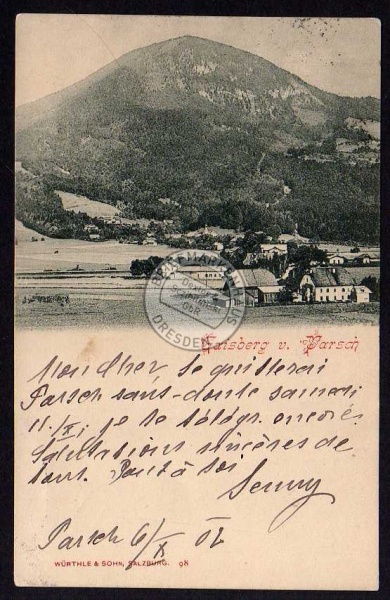 BRIEFMARKENHAUS
Dresden
GbR
DRESDEN
Gaisberg v. Parsch
Mon Cher, Je quitterai
Parsch sans-doute samedi
11./X; je te télégr. encore.
Salutations sincères de
tous. Tout à toi
Parsch 6/X 02
WÜRTHLE & SOHN, SALZBURG. 98